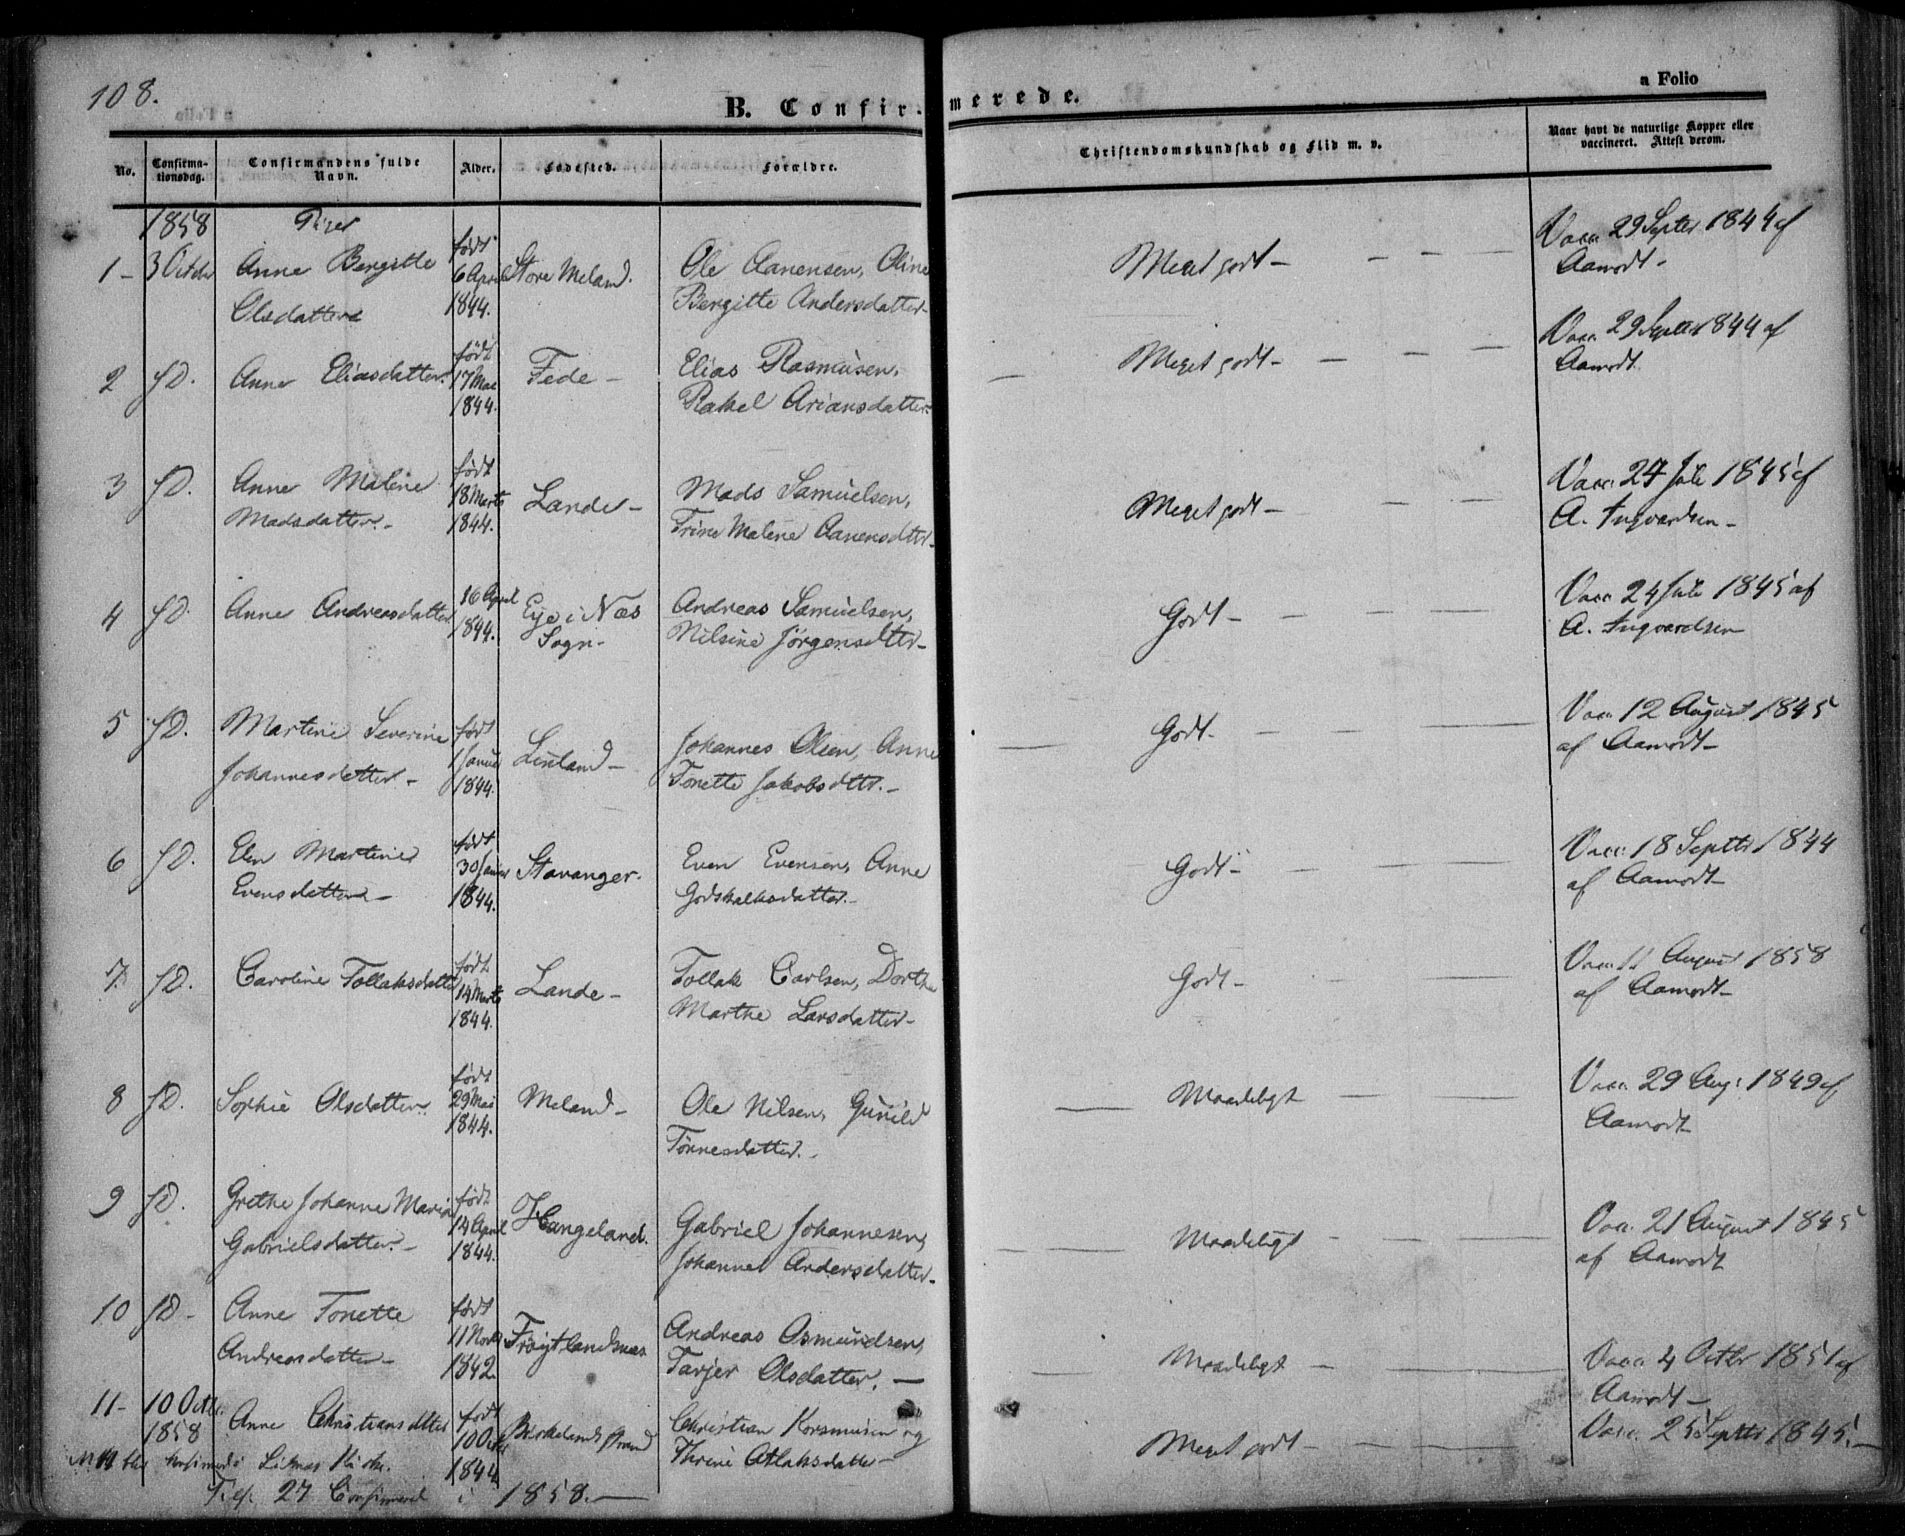 108.
B. Confirmerede.
a Folio
No.
Confirma-
tionsdag.
Confirmandens fulde
Navn.
Alder.
Fødested.
Forældre.
Christendomskundskab og Flid m. v.
Naar havt de naturlige Kopper eller
vaccineret. Attest derom.
1858 Piger
1- 3 Octobr Anne Bergitte Olsdatter født 6 April 1844. Store Meland. Ole Aanensen, Oline Bergitte Andersdatter- Meget godt - Vacc. 29 Septbr 1844 af Aamodt -
2 fD. Anne Eliasdatter. født 17 Mai 1844. Fede - Elias Rasmusen, Rakel Ariansdatter- Meget godt - Vacc. 29 Septbr 1844 af Aamodt.
3 fD. Anne Maline Madsdatter.- født 18 Marts 1844. Lande - Mads Samuelsen, Trine Malene Aanensdtter- Meget godt - Vacc. 24 Juli 1845 af A. Ingvardsen -
4 fD. Anne Andreasdatter 16 April 1844. Eye i Næs Sogn- Andreas Samuelsen, Nilsine Jørgensdttr- Godt - Vacc 24 Juli 1845 af A. Ingvardsen
5 fD. Martine Severine Johannesdatter.- født 1 Januar 1844. Linland - Johannes Olsen, Anne Tonette Jakobsdttr.- Godt - Vacc 12 August 1845 af Aamodt -
6 fD. Elen Martine Evensdatter - født 30 Januar 1844. Stavanger. Even Evensen, Anne Godskalksdatter.- Godt - Vacc. 18 Septbr 1844 af Aamodt -
7. fD. Caroline Tollaksdatter født 14 Marts 1844. Lande - Tollak Carlsen, Dorthe Marthe Larsdatter - Godt - Vacc. 11 August 1858 af Aamodt -
8 fD. Sophie Olsdatter. født 29 Mai 1844. Meland - Ole Nilsen, Gunild Tønnesdatter.- Maadeligt Vacc. 29 Aug. 1849 af Aamodt
9 fD. Grethe Johanne Maria Gabrielsdatter.- født 14 April 1844. Hangeland. Gabriel Johannesen, Johanne Andersdatter- Maadeligt Vacc. 21 August 1845 af Aamodt
10 fD - Anne Tonette Andreasdatter - født 11 Novb 1842. Frøytlandsnæs Andreas Osmundsen, Tarjer Olsdatter. - Maadeligt Vacc. 4 Octbr 1851 af Aamodt -
11- 10 Octb. 1858 Anne Christiansdtter født 10 Octb 1844 Birkelands strand Christian Korsmusen og Thrine Atlaksdatter - Meget godt - Vacc. 25 Septbr 1845. -
N 11 blev konfirmeret i Liknes Kirke.
27 Confirmered i 1858. -